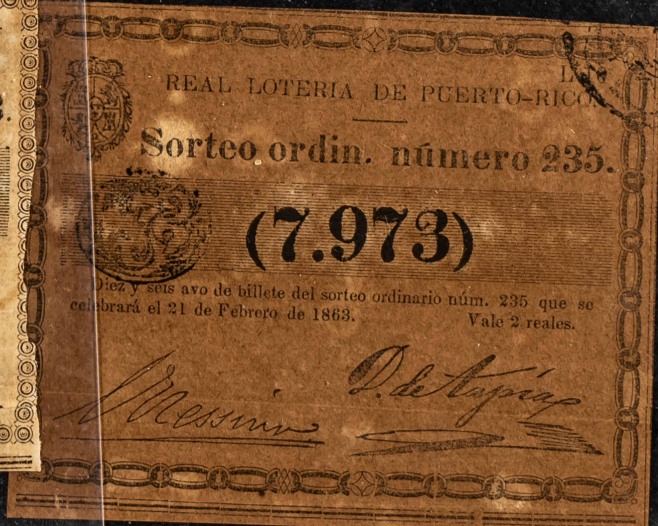 REAL LOTERIA DE PUERTO-RICO
Sorteo ordin. número 235.
(7.973)
Diez y seis avo de billete del sorteo ordinario núm. 235 que se
celebrará el 21 de Febrero de 1863. Vale 2 reales.
Messina